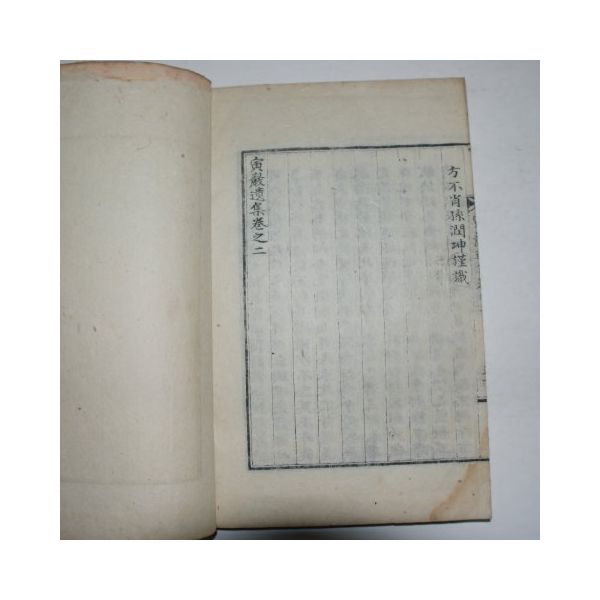 方不肖孫潤坤謹識
寅巖遺集卷之二